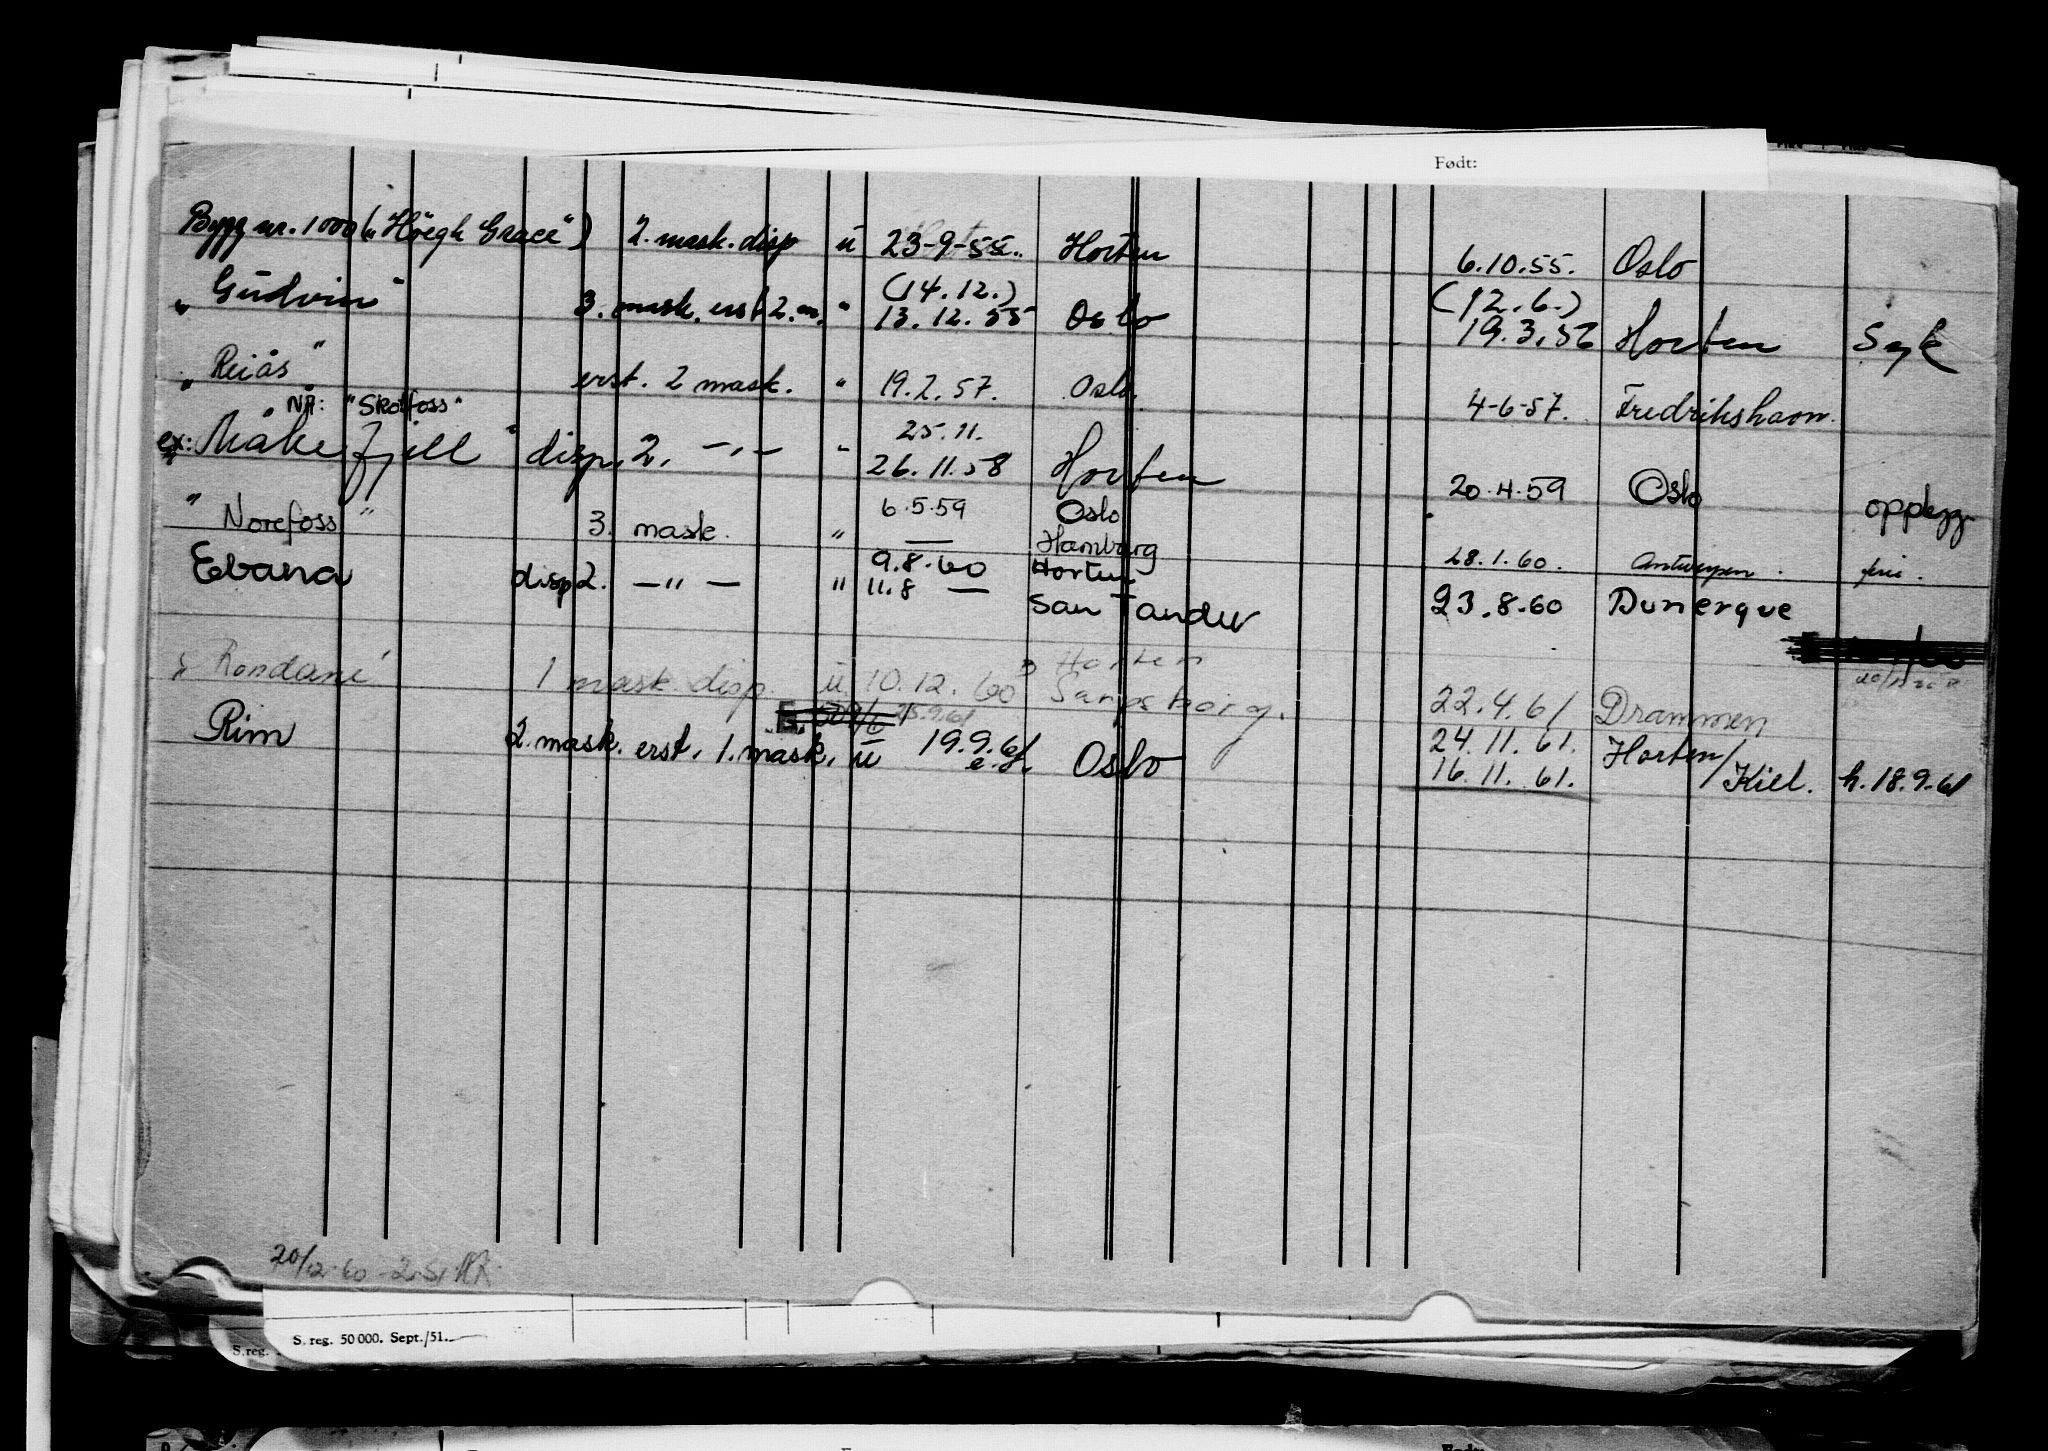 Født:
Bygg nr. 1000 („Höegh Grace") 2. mask. disp u 23-9-55. Horten 6.10.55. Oslo
(14.12.) (12.6.)
„ Gudvin " 3. mask. erst 2. m. " 13.12.55 Oslo 19.3.56 Horten Syk
„ Reiås " erst. 2 mask. " 19.2.57. Oslo. 4-6-57. Fredrikshavn.
NÅ: "Skotfoss" 25.11.
ex: Måkefjell " disp. 2. -"- " 26.11.58 Horten 20.4.59 Oslo opplegg
6.5.59 Oslo
" Norefoss " 3. mask. " — Hamburg 28.1.60. Antwerpen. feri.
9.8.60 Horten
Ebana disp 2. -"- " 11.8 — San Tander 23.8.60 Dunerque
Horten
„ Rondane" 1 mask. disp. u. 10.12.60 Sarpsborg. 22.4.61 Drammen
25.9.61 24.11.61. Horten/
Rim 2. mask. erst. 1. mask. u 19.9.61 e.f. Oslo 16.11.61. Kiel. h. 18.9.61
20/12-60
S. reg. 50 000. Sept./51.
S. reg.